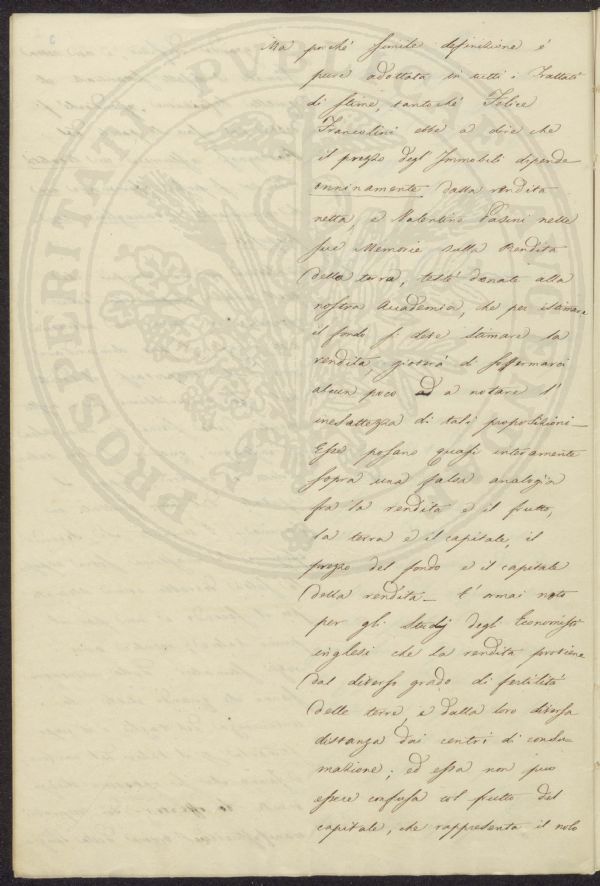 Ma poiché simile definizione è
pure adottata in tutti i Trattati
di stime, tantoché Felice
Francolini ebbe a dire che
il prezzo degl'Immobili dipende
onninamente dalla rendita
netta, e Valentino Pasini nelle
sue Memorie sulla Rendita
della terra, testé donate alla
nostra Accademia, che per istimare
il fondo si deve stimare la
rendita, gioverà di soffermarci
alcun poco ad a notare l'
inesattezza di tali proposizioni_
Esse posano quasi interamente
sopra una falsa analogia
fra la rendita e il frutto,
la terra e il capitale, il
prezzo del fondo e il capitale
della rendita_ E' ormai noto
per gli Studj degli Economisti
inglesi che la rendita proviene
dal diverso grado di fertilità
delle terre, e dalla loro diversa
distanza dai centri di consu-
mazione; ed essa non può
essere confusa col frutto del
capitale, che rappresenta il nolo
PROSPERITATI PVBLICAE